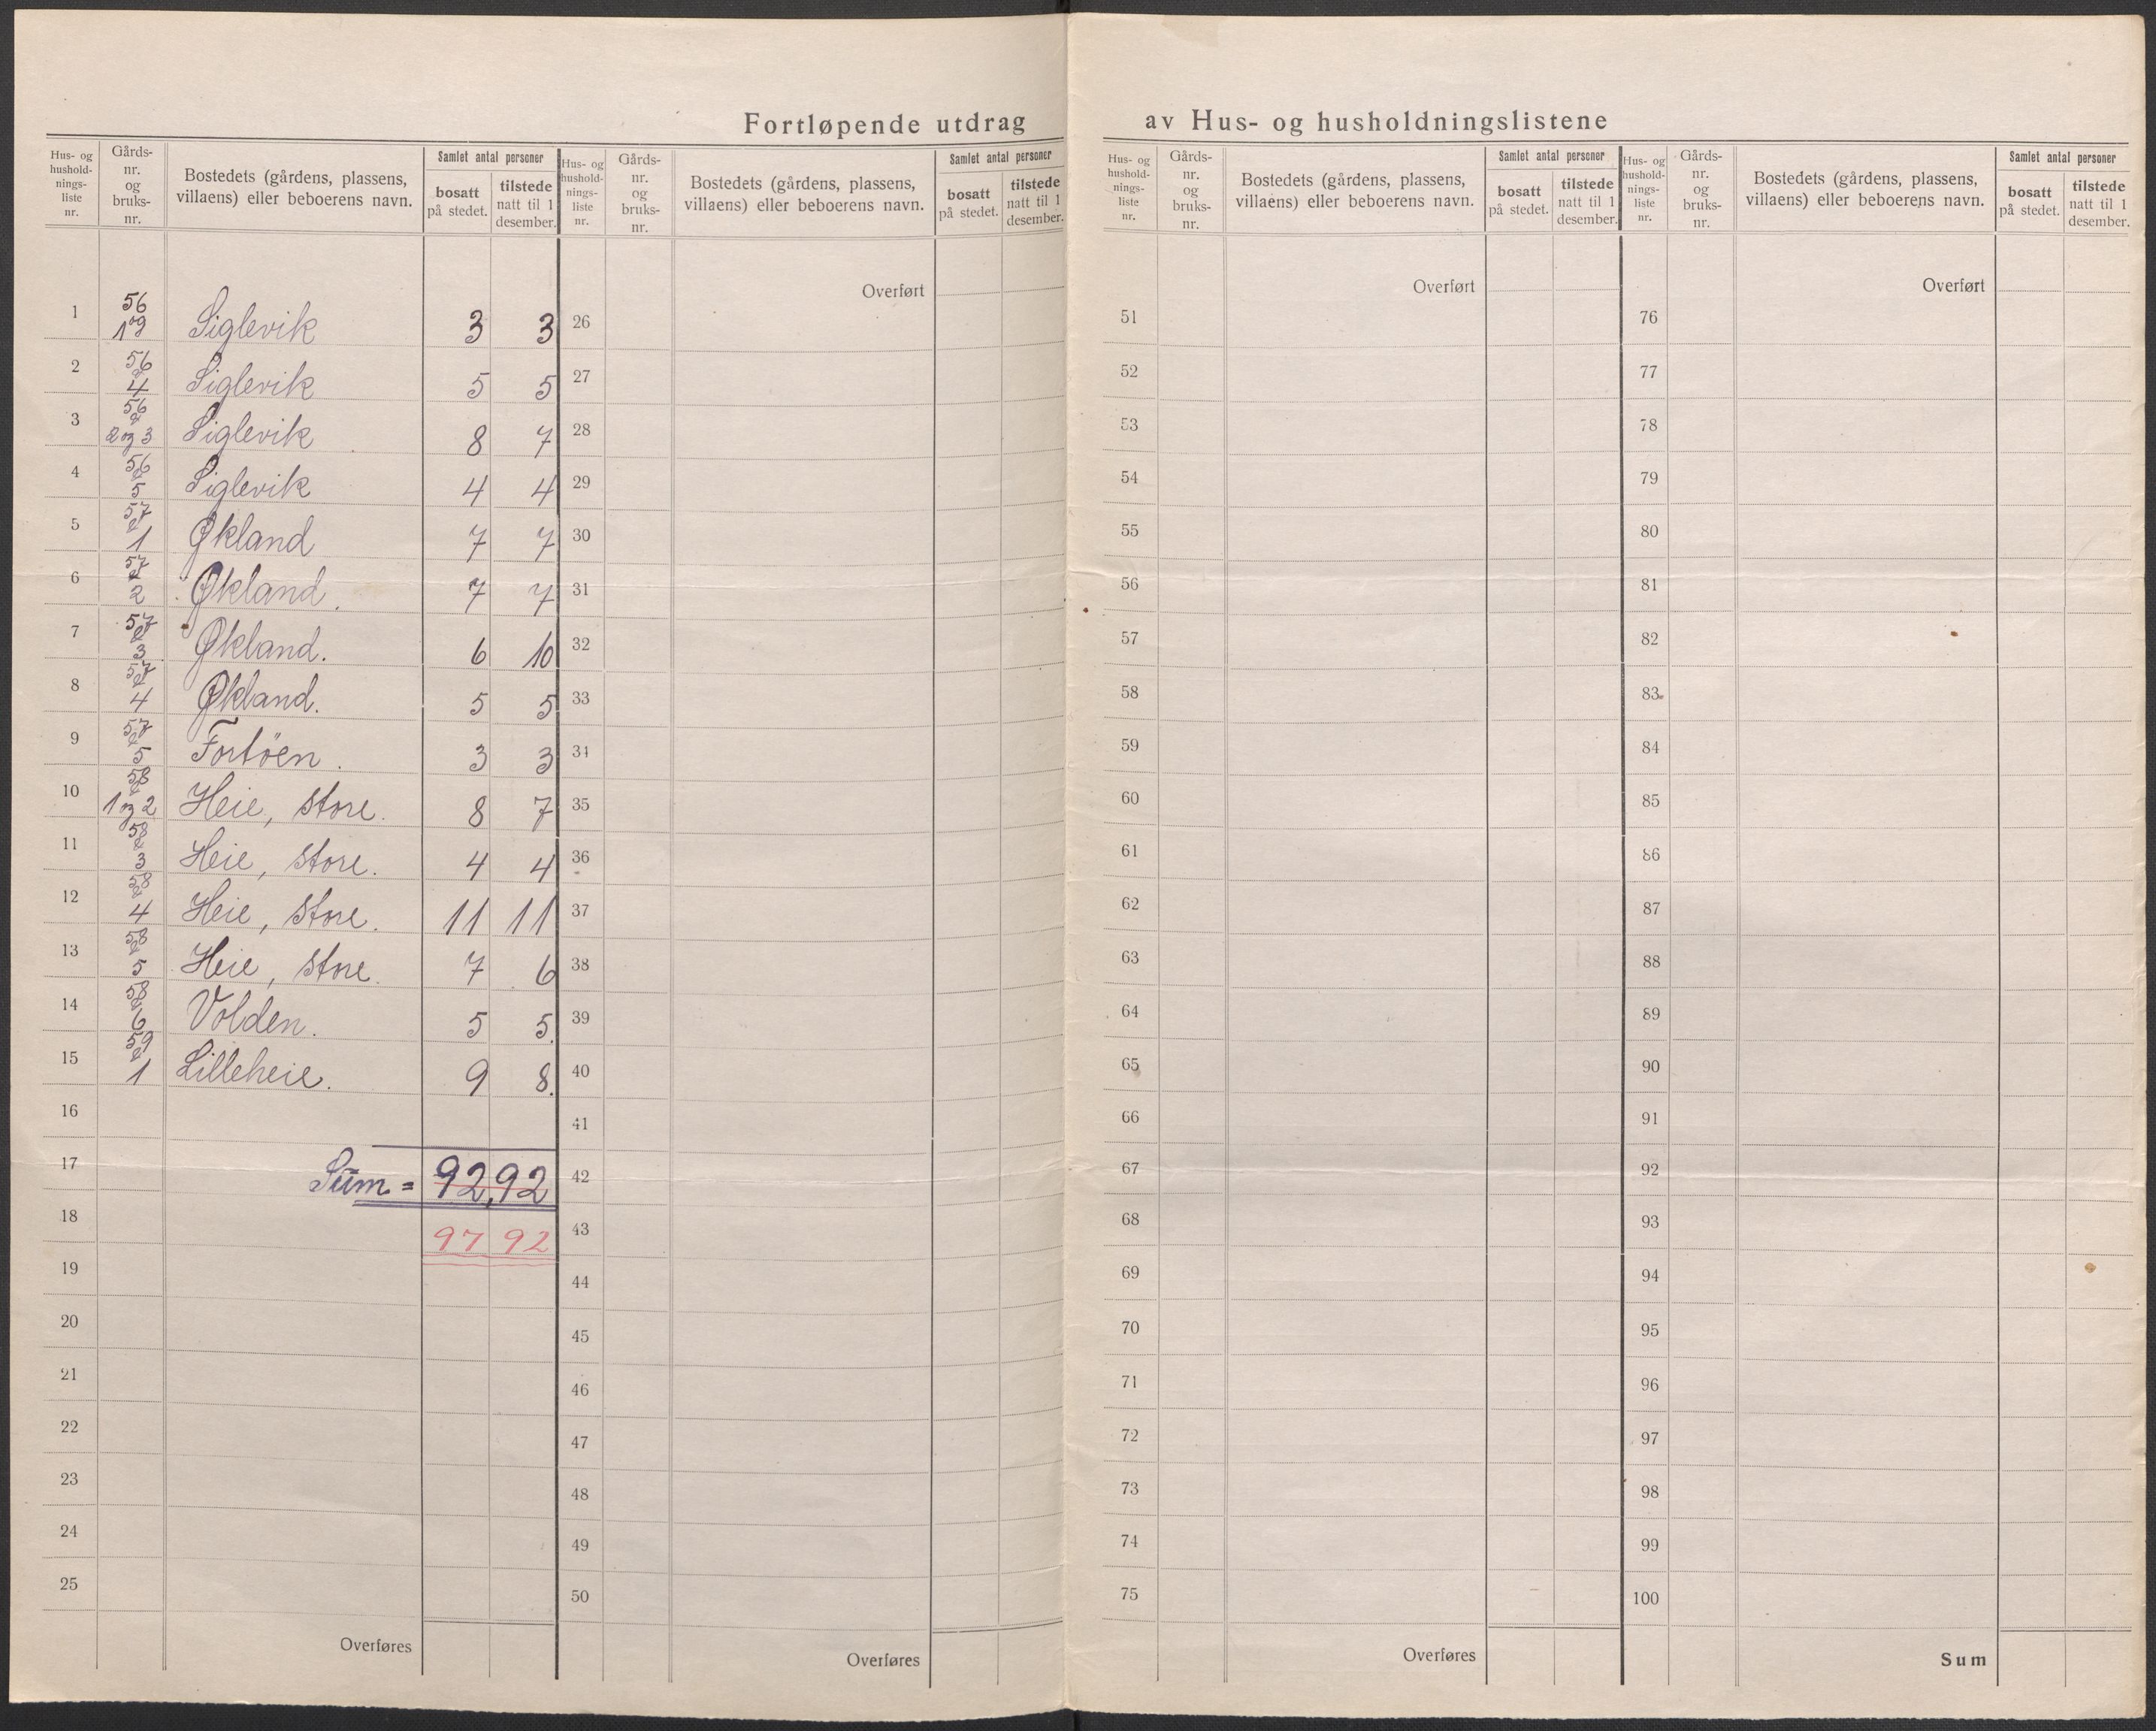 Fortløpende utdrag av Hus- og husholdningslistene
Hus- og hushold- nings- liste nr. | Gårds- nr. og bruks- nr. | Bostedets (gårdens, plassens, villaens) eller beboerens navn. | Samlet antal personer | bosatt på stedet. | tilstede natt til 1 desember.
1 | 56 | Siglevik | 3 | 3
2 | 56 4 | Siglevik | 5 | 5
3 | 56 2 og 3 | Siglevik | 8 | 7
4 | 56 5 | Siglevik | 4 | 4
5 | 57 1 | Økland | 7 | 7
6 | 57 2 | Økland. | 7 | 7
7 | 57 3 | Økland. | 6 | 10
8 | 57 4 | Økland. | 5 | 5
9 | 57 5 | Fortöen. | 3 | 3
10 | 58 1 og 2 | Heie, store. | 8 | 7
11 | 58 3 | Heie, store. | 4 | 4
12 | 58 4 | Heie, store. | 11 | 11
13 | 58 5 | Heie, store. | 7 | 6
14 | 58 6 | Volden. | 5 | 5.
15 | 59 1 | Lilleheie. | 9 | 8.
16
17 | Sum = | 92, | 92
18 | 97 | 92
19
20
21
22
23
24
25
Overføres
Hus- og hushold- nings- liste nr. | Gårds- nr. og bruks- nr. | Bostedets (gårdens, plassens, villaens) eller beboerens navn. | Samlet antal personer | bosatt på stedet. | tilstede natt til 1 desember.
Overført
26
27
28
29
30
31
32
33
34
35
36
37
38
39
40
41
42
43
44
45
46
47
48
49
50
Overføres
Hus- og hushold- nings- liste nr. | Gårds- nr. og bruks- nr. | Bostedets (gårdens, plassens, villaens) eller beboerens navn. | Samlet antal personer | bosatt på stedet. | tilstede natt til 1 desember.
Overført
51
52
53
54
55
56
57
58
59
60
61
62
63
64
65
66
67
68
69
70
71
72
73
74
75
Overføres
Hus- og hushold- nings- liste nr. | Gårds- nr. og bruks- nr. | Bostedets (gårdens, plassens, villaens) eller beboerens navn. | Samlet antal personer | bosatt på stedet. | tilstede natt til 1 desember.
Overført
76
77
78
79
80
81
82
83
84
85
86
87
88
89
90
91
92
93
94
95
96
97
98
99
100
Sum